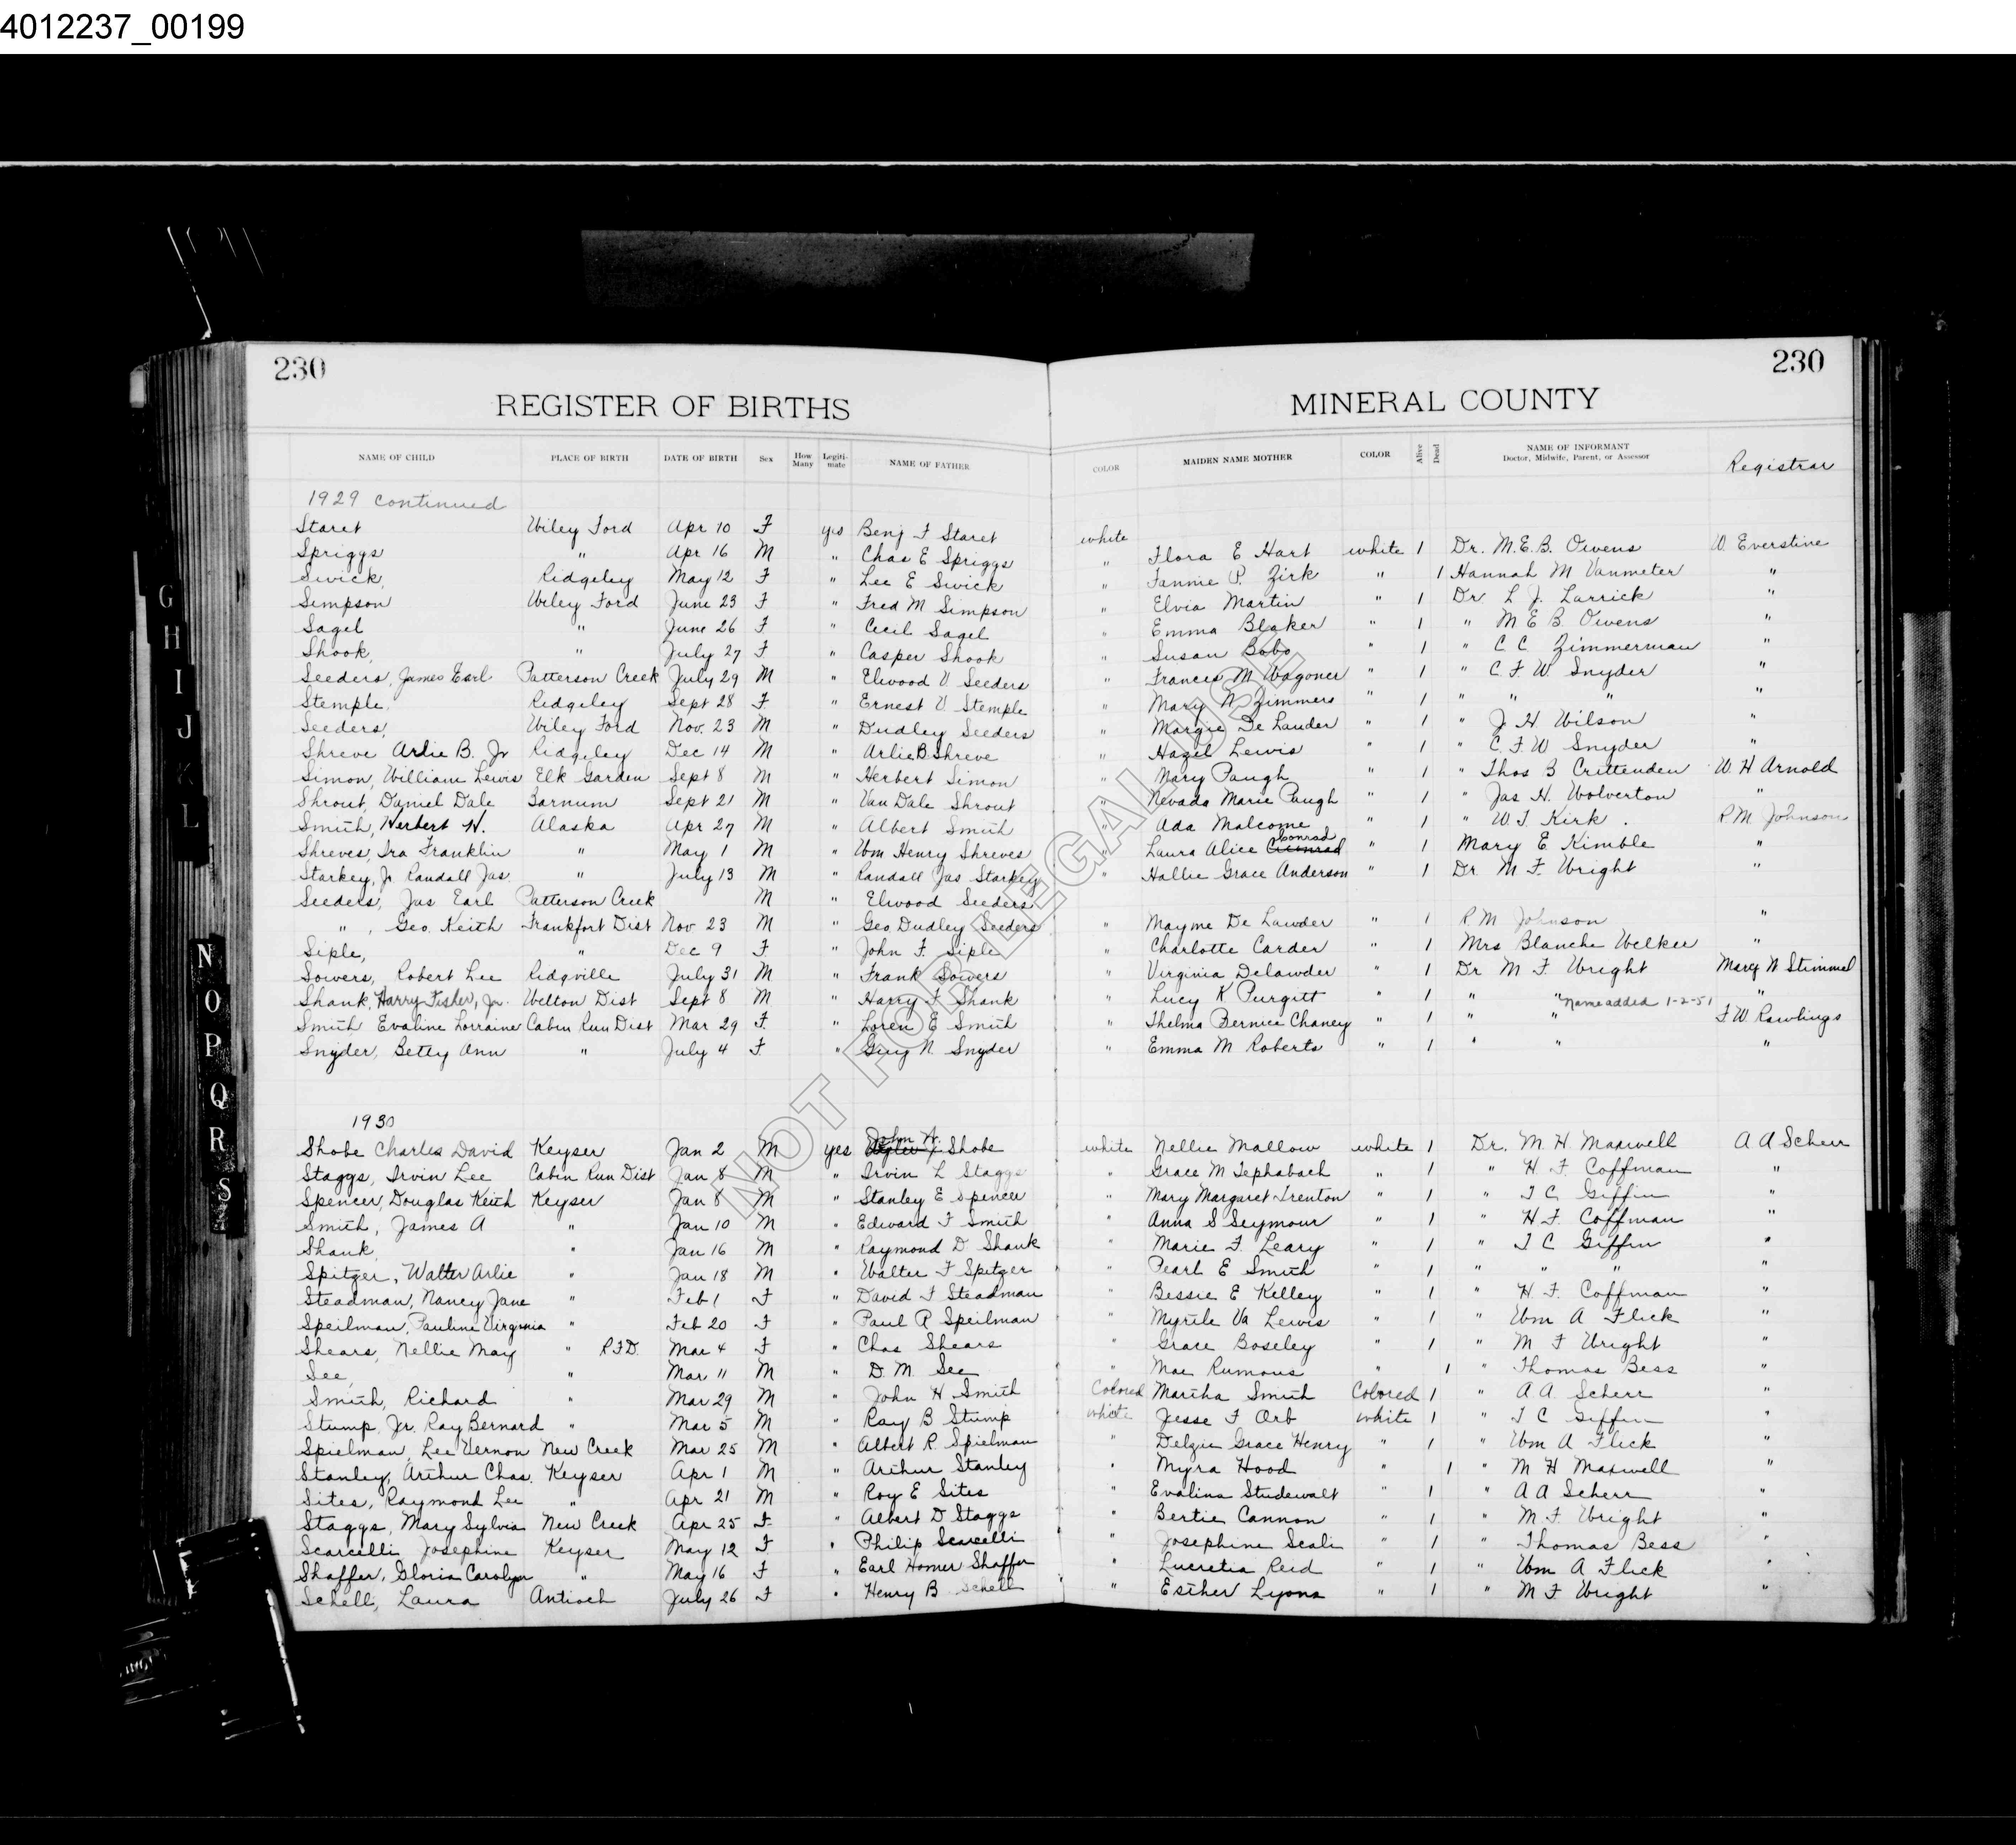 4012237_00199
230 230
REGISTER OF BIRTHS MINERAL COUNTY
NAME OF CHILD PLACE OF BIRTH DATE OF BIRTH Sex How Many Legiti-mate NAME OF FATHER COLOR MAIDEN NAME MOTHER COLOR Alive Dead NAME OF INFORMANT Doctor, Midwife, Parent, or Assessor Registrar
1929 continued
Staret Wiley Ford Apr 10 F yes Benj F Staret white Flora E Hart white 1 Dr. M.E.B. Owens W. Everstine
Spriggs " Apr 16 M " Chas E Spriggs " Fannie P. Zirk " 1 Hannah M Vanmeter "
Swick, Ridgeley May 12 F " Lee E Swick " Elvia Martin " 1 Dr L J. Larrick "
Simpson Wiley Ford June 23 F " Fred M Simpson " Emma Blaker " 1 " M E B Owens "
Sagel " June 26 F " Cecil Sagel " Susan Bobo " 1 " C C Zimmerman "
Shook, " July 27 F " Casper Shook " Frances M Wagoner " 1 " C. F. W. Snyder "
Seeders, James Earl Patterson Creek July 29 M " Elwood V Seeders " Mary N Zimmers " 1 " " " "
Stemple, Ridgeley Sept 28 F " Ernest V Stemple " Margie De Lauder " 1 " J. H. Wilson "
Seeders, Wiley Ford Nov. 23 M " Dudley Seeders " Hazel Lewis " 1 " C. F. W Snyder "
Shreve Arlie B. Jr Ridgeley Dec 14 M " Arlie B. Shreve " Mary Paugh " 1 " Thos B Crittenden W. H Arnold
Simon, William Lewis Elk Garden Sept 8 M " Herbert Simon " Nevada Marie Paugh " 1 " Jas H. Wolverton "
Shrout, Daniel Dale Barnum Sept 21 M " Van Dale Shrout " Ada Malcome " 1 " W. T. Kirk . R M Johnson
Smith, Herbert H. Alaska Apr 27 M " Albert Smith " Laura Alice Conrad " 1 Mary E Kimble "
Shreves, Ira Franklin " May 1 M " Wm Henry Shreves " Hallie Grace Anderson " 1 Dr. M F. Wright "
Starkey, Jr. Randall Jas. " July 13 M " Randall Jas Starkey
Seeders, Jas Earl Patterson Creek M " Elwood Seeders " Mayme De Lawder " 1 R M Johnson "
" , Geo. Keith Frankfort Dist Nov 23 M " Geo. Dudley Seeders " Charlotte Carder " 1 Mrs Blanche Welker "
Siple, " Dec 9 F " John F. Siple " Virginia Delawder " 1 Dr M F. Wright Marg N Stimmel
Sowers, Robert Lee Ridgville July 31 M " Frank Sowers " Lucy K Purgitt " 1 " " Name added 1-2-51 "
Shank, Harry Fisher, Jr. Welton Dist Sept 8 M " Harry F Shank " Thelma Bernice Chaney " 1 " " F W Rawlings
Smith Evaline Lorraine Cabin Run Dist Mar 29 F " Loren E Smith " Emma M Roberts " 1 " " "
Snyder, Betty Ann " July 4 F " Guy N. Snyder
1930
Shobe Charles David Keyser Jan 2 M yes John W. Shobe white Nellie Mallow white 1 Dr. M. H. Maxwell A A Scherr
Staggs, Irvin Lee Cabin Run Dist Jan 8 M " Irvin L Staggs " Grace M Tephabach " 1 " H. F. Coffman "
Spencer, Douglas Keith Keyser Jan 8 M " Stanley E Spencer " Mary Margaret Trenton " 1 " T C Giffin "
Smith, James A " Jan 10 M " Edward F Smith " Anna S Seymour " 1 " H. F. Coffman "
Shank, " Jan 16 M " Raymond D. Shank " Marie F. Leary " 1 " T C Giffin "
Spitzer, Walter Arlie " Jan 18 M " Walter F Spitzer " Pearl E Smith " 1 " " " "
Steadman, Nancy Jane " Feb 1 F " David F Steadman " Bessie E Kelley " 1 " H. F. Coffman "
Speilman, Pauline Virginia " Feb 20 F " Paul R Speilman " Myrtle Va Lewis " 1 " Wm A Flick "
Shears, Nellie May " R.F.D. Mar 4 F " Chas Shears " Grace Boseley " 1 " M F Wright "
See, " Mar 11 M " D. M. See " Mae Rumous " 1 " Thomas Bess "
Smith, Richard " Mar 29 M " John H Smith Colored Martha Smith Colored 1 " A A. Scherr "
Stump, Jr. Ray Bernard " Mar 5 M " Ray B Stump white Jesse F Orb white 1 " T C Giffin "
Spielman, Lee Vernon New Creek Mar 25 M " Albert R. Spielman " Delzie Grace Henry " 1 " Wm A Flick "
Stanley, Arthur Chas. Keyser Apr 1 M " Arthur Stanley " Myra Hood " 1 " M H Maxwell "
Sites, Raymond Lee " Apr 21 M " Roy E Sites " Evalina Studewalt " 1 " A A Scherr "
Staggs, Mary Sylvia New Creek Apr 25 F " Albert D Staggs " Bertie Cannon " 1 " M F. Wright "
Scarcelli Josephine Keyser May 12 F " Philip Scarcelli " Josephine Scali " 1 " Thomas Bess "
Shaffer, Gloria Carolyn " May 16 F " Earl Homer Shaffer " Lucretia Reid " 1 " Wm A Flick "
Schell, Laura Antioch July 26 F " Henry B Schell " Esther Lyons " 1 " M F. Wright "
G
H
I
J
K
L
N
O
P
Q
R
S
NOT FOR LEGAL USE